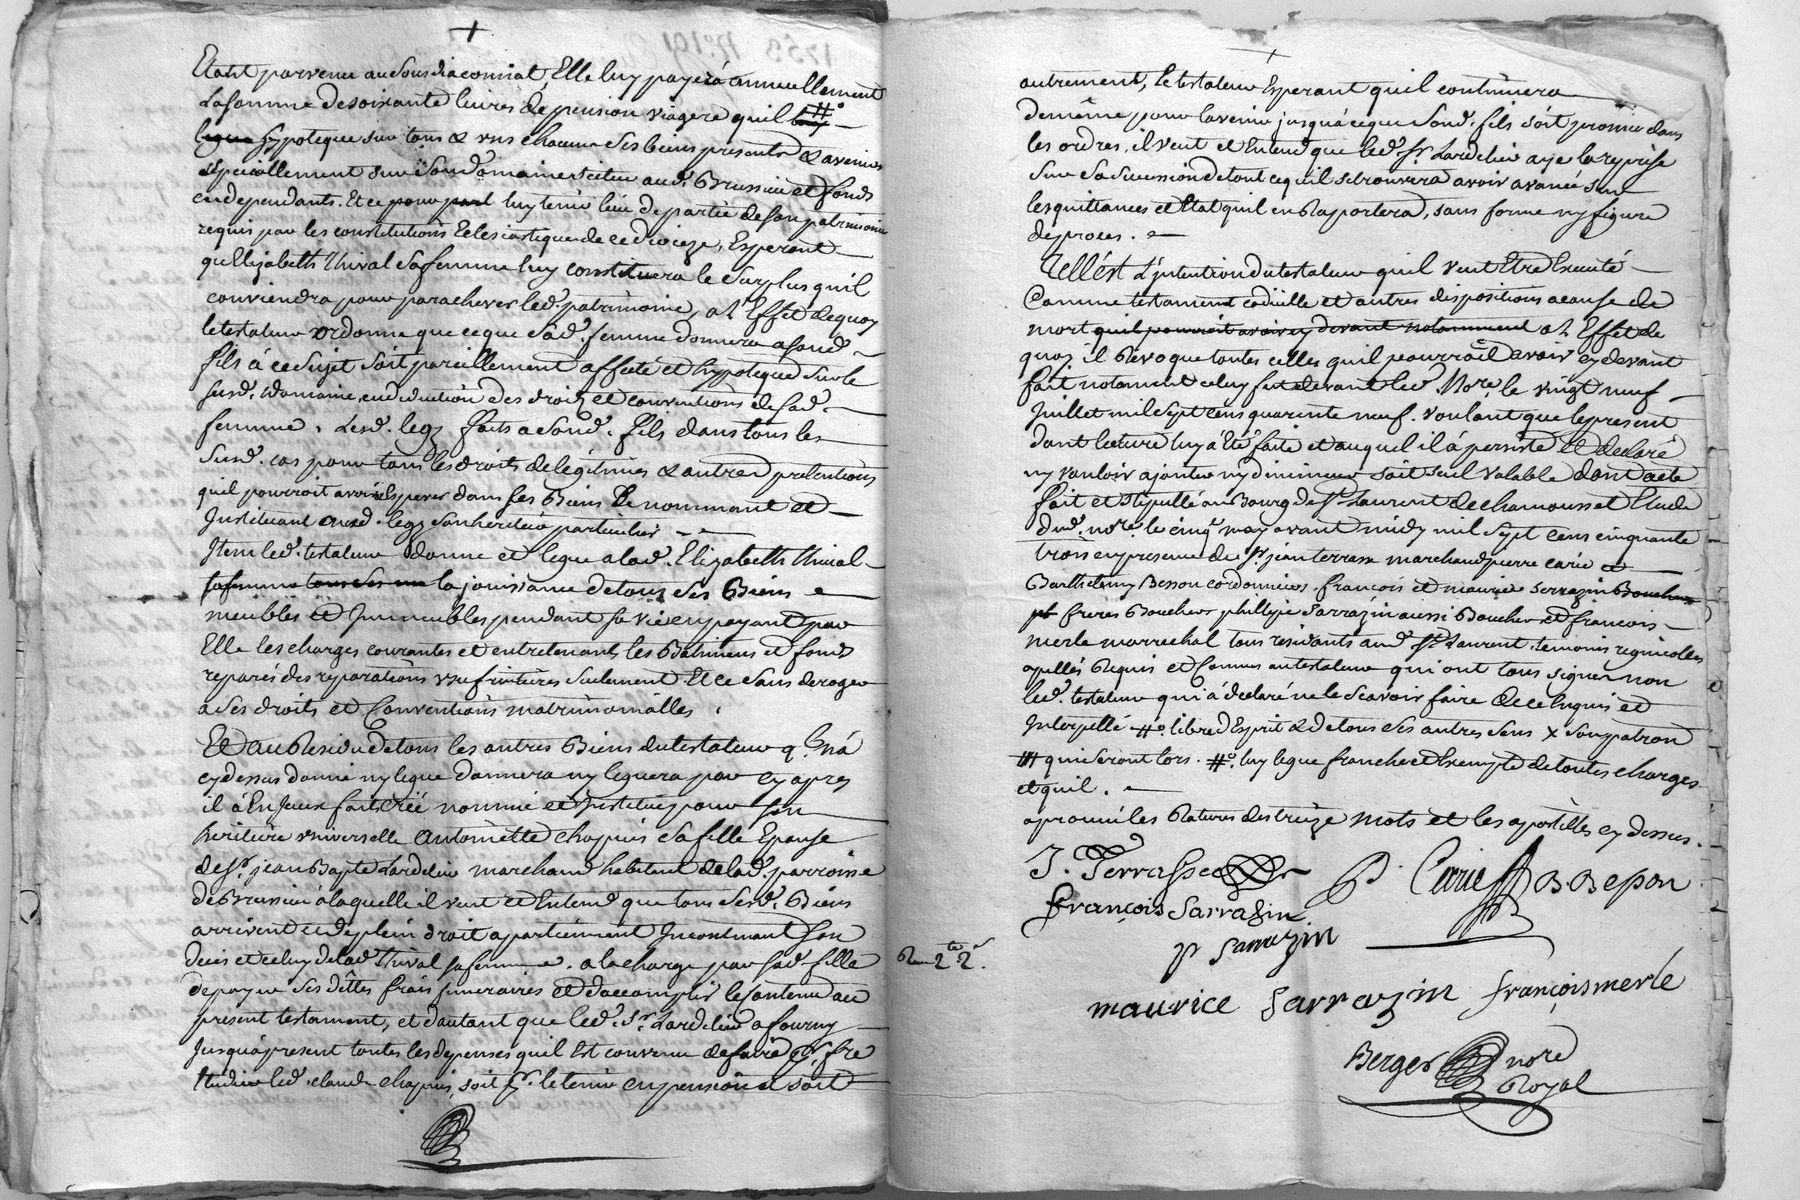 Etant parvenu au sousdiaconniat, Elle luy payera annuellement
La somme de soixante livres de pension viagere quil #°
hypoteque sur tous & uns chacuns ses biens presents & avenirs
speciallement sur son domaine scitue aud. Brussieu et fonds
en dependants. Et ce pour luy tenir lieu de partie de son patrimoine
requis par les constitutions Eclesiastiques de ce dioceze, Esperant
qu'Elizabeth Thival sa femme luy constituera le surplus quil
conviendra pour parachever led. patrimoine, a l'Effet de quoy
le testateur ordonne que ce que sad. femme donnera a sond.
fils à ce sujet soit pareillement affecte et hypoteque sur le
susd. domaine, en deduction des droits et conventions de sad.
femme. Lesd. legs faits a sond. fils dans tous les
susd. cas pour tous les droits de legitimes & autres pretentions
quil pourroit avoir Esperer dans ses Biens Le nommant et
Instituant ausd. legs son heritier particulier
Item led. testateur donne et legue a lad. Elizabeth thival
sa femme tous ses la jouissance de tous ses Biens
meubles et Immeubles pendant sa vie en payant par
Elle les charges courantes et entretenant les Batimens et fonds
reparés des reparations usufruitieres seulement. Et ce sans deroger
a ses droits et Conventions matrimonialles.
Et au Residu de tous les autres Biens du testateur q. n'a
cy dessus donné ny legué donnera ny leguera par cy apres
il à fait créé nommé et Institué pour son
heritiere universelle Antoinette chapuis sa fille Epouse
de Sr. jean Bapte Lardelier marchand habitant de lad. parroisse
de Brussieu à laquelle il veut et Entend que tous sesd. Biens
arrivent et de plein droit appartiennent Incontinant son
deces et celuy de lad. Thival sa femme. a la charge par sad. fille
de payer ses dettes frais funeraires et d'accomplir le contenu au
present testament, et d'autant que led. Sr. Lardelier a fourny
Jusqu'a present toutes les depenses quil Est convenu de faire
Etudier led. claude chapuis, soit pr. le tenir en pension soit
autrement, le testateur Esperant quil continuera
de même pour l'avenir jusqu'a ce que sond. fils soit promu dans
les ordres, il veut et Entend que led. Sr. Lardelier aye la reprise
sur sa succession de tout ce quil se trouvera avoir avancé sur
les quittances et Etat quil en Raportera, sans forme ny figure
de proces.
Telle est L'intention du testateur quil veut Etre Executé
Comme testament codicille et autres dispositions a cause de
mort quil pourroit avoir cy devant notamment a l'Effet de
quoy il Revoque toutes celles quil pourroit avoir cy devant
fait notament celuy fait devant led. Nore. le vingt neuf
Juillet mil sept cens quarente neuf. voulant que le present
dont lecture luy a été faite et auquel il à persisté Et declaré
ny vouloir ajouter ny diminuer soit seul valable dont acte
fait et stipullé au Bourg de St. Laurent de chamousset Etude
dud. nore. le cinq may avant midy mil sept cens cinquante
trois en presence de Sr. jean terrasse marchand pierre carié
Barthelemy Besson cordonniers, francois et maurice sarrazin
freres Bouchers phillipe sarrazin aussi Boucher et francois
merle marrechal tous residants aud. St. Laurent, temoins regnicolles
apellés Requis et Connus au testateur qui ont tous signé non
led. testateur qui à declaré ne le sçavoir faire de ce Enquis et
Interpellé #° libre d'Esprit & de tous ses autres sens x son patron
# qui seront lors. #°. luy legue franche et Exempte de toutes charges
et quil.
aprouvé les Ratures des treize mots et les apostilles cy dessus.
J. Terrasse P. Carié B. Beson
françois Sarrazin
p sarrazin
Rm 2te 2d.
maurice sarrazin françois merle
Berger nore
Royal